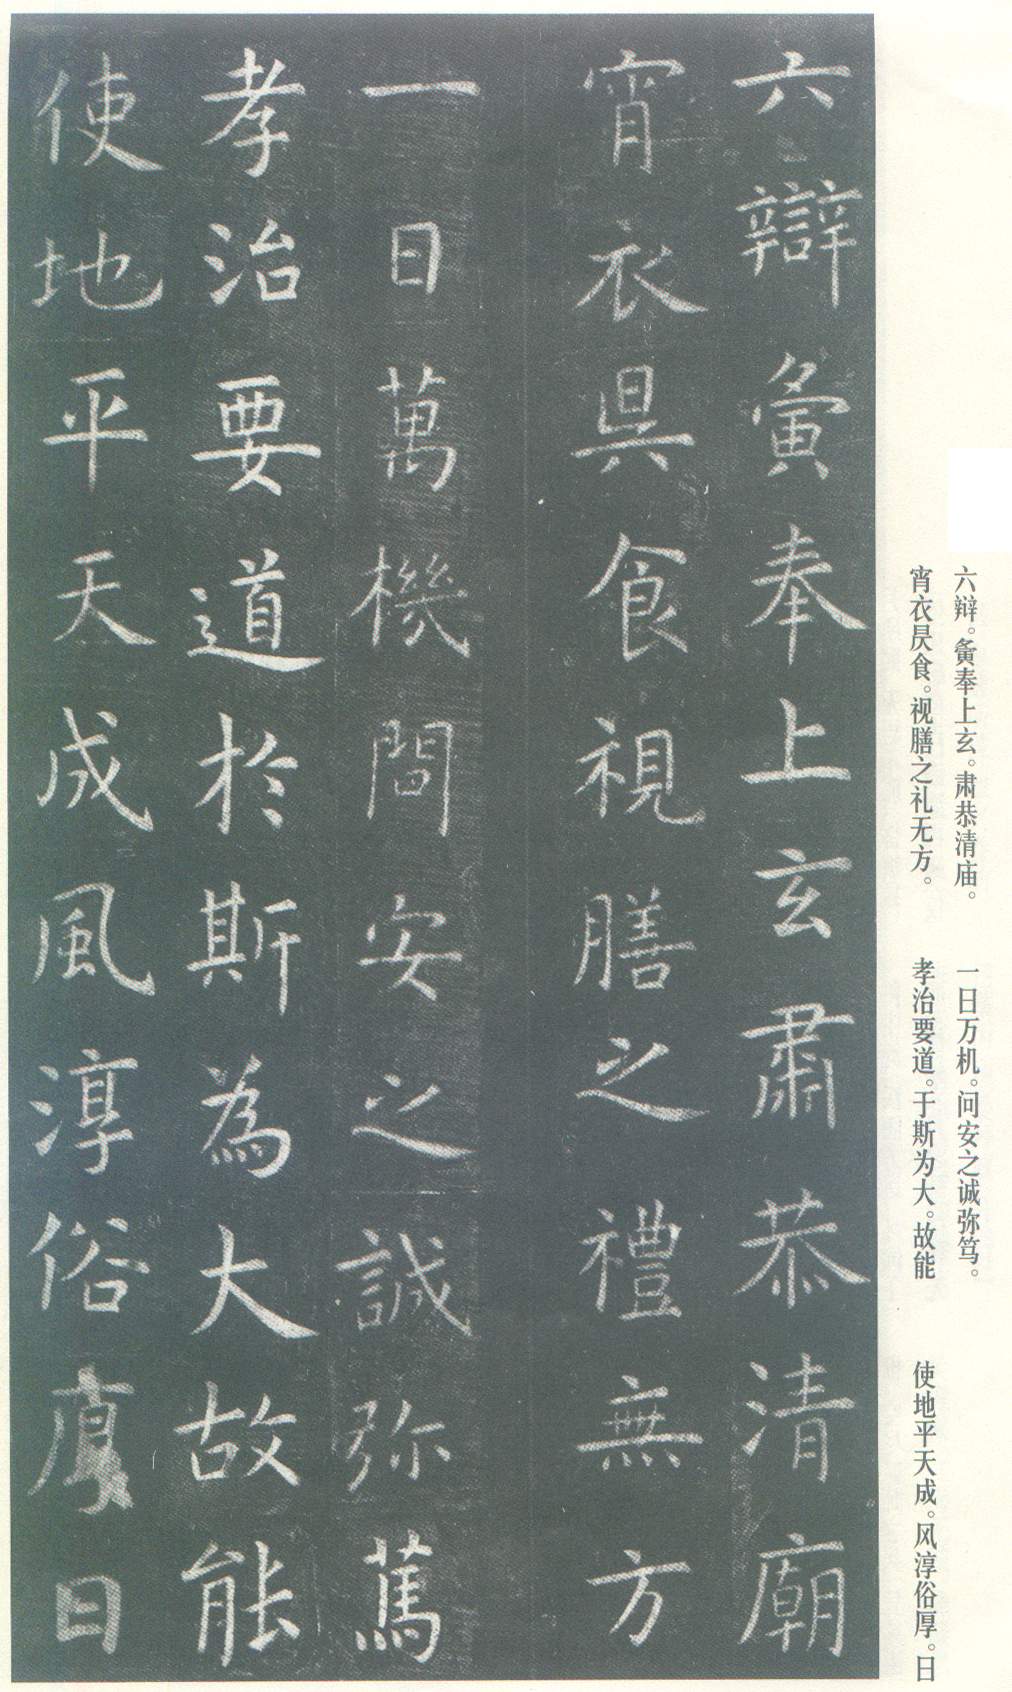 六辯夤奉上玄肅恭清廟
宵衣昃食視膳之禮無方
一日萬機問安之誠弥篤
孝治要道於斯為大故能
使地平天成風淳俗厚日
六辩。夤奉上玄。肃恭清庙。
宵衣昃食。视膳之礼无方。
一日万机。问安之诚弥笃。
孝治要道。于斯为大。故能
使地平天成。风淳俗厚。日